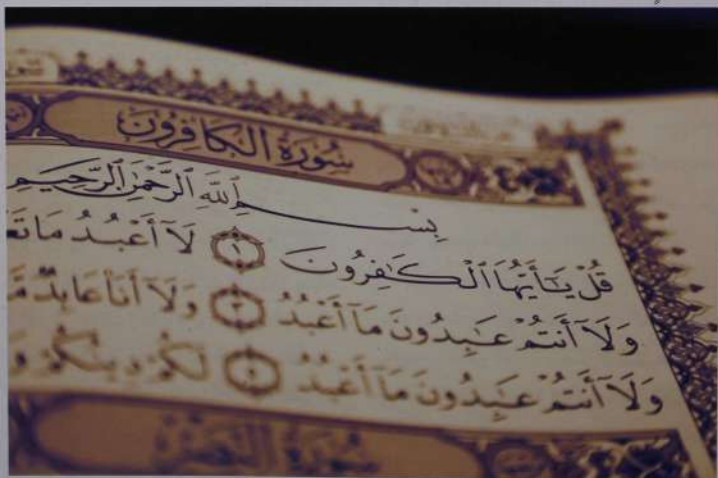 سُورَةُ الكَافِرُون
بِسْمِ ٱللَّهِ ٱلرَّحْمَٰنِ ٱلرَّحِيمِ
قُلْ يَٰٓأَيُّهَا ٱلْكَٰفِرُونَ ١ لَآ أَعْبُدُ مَا
وَلَآ أَنتُمْ عَٰبِدُونَ مَآ أَعْبُدُ ٣ وَلَآ أَنَا۠ عَابِدٌ
وَلَآ أَنتُمْ عَٰبِدُونَ مَآ أَعْبُدُ ٥ لَكُمْ دِينُكُمْ
سُورَةُ النَّصْر